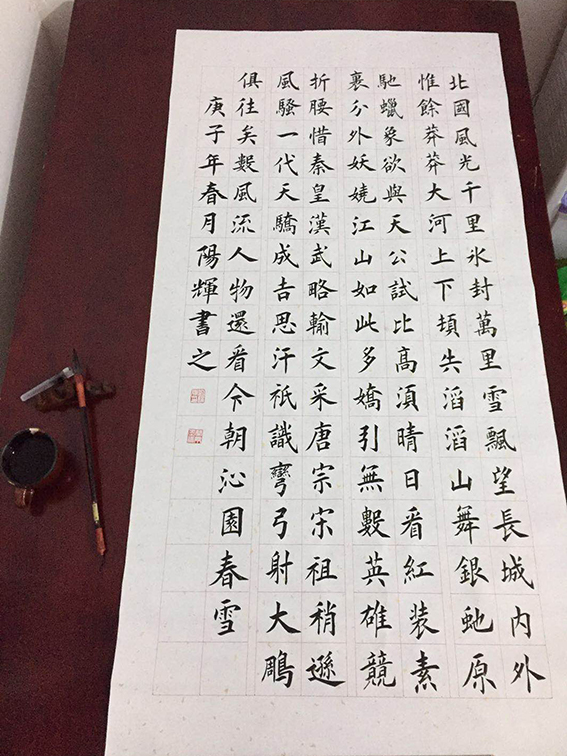 北國風光千里氷封萬里雪飄望長城内外
惟餘莽莽大河上下頓失滔滔山舞銀虵原
馳蠟象欲與天公試比高須晴日看紅装素
裹分外妖嬈江山如此多嬌引無數英雄競
折腰惜秦皇漢武略輸文采唐宗宋祖稍遜
風騷一代天驕成吉思汗祇識彎弓射大鵰
俱往矣數風流人物還看今朝沁園春雪
庚子年春月陽輝書之